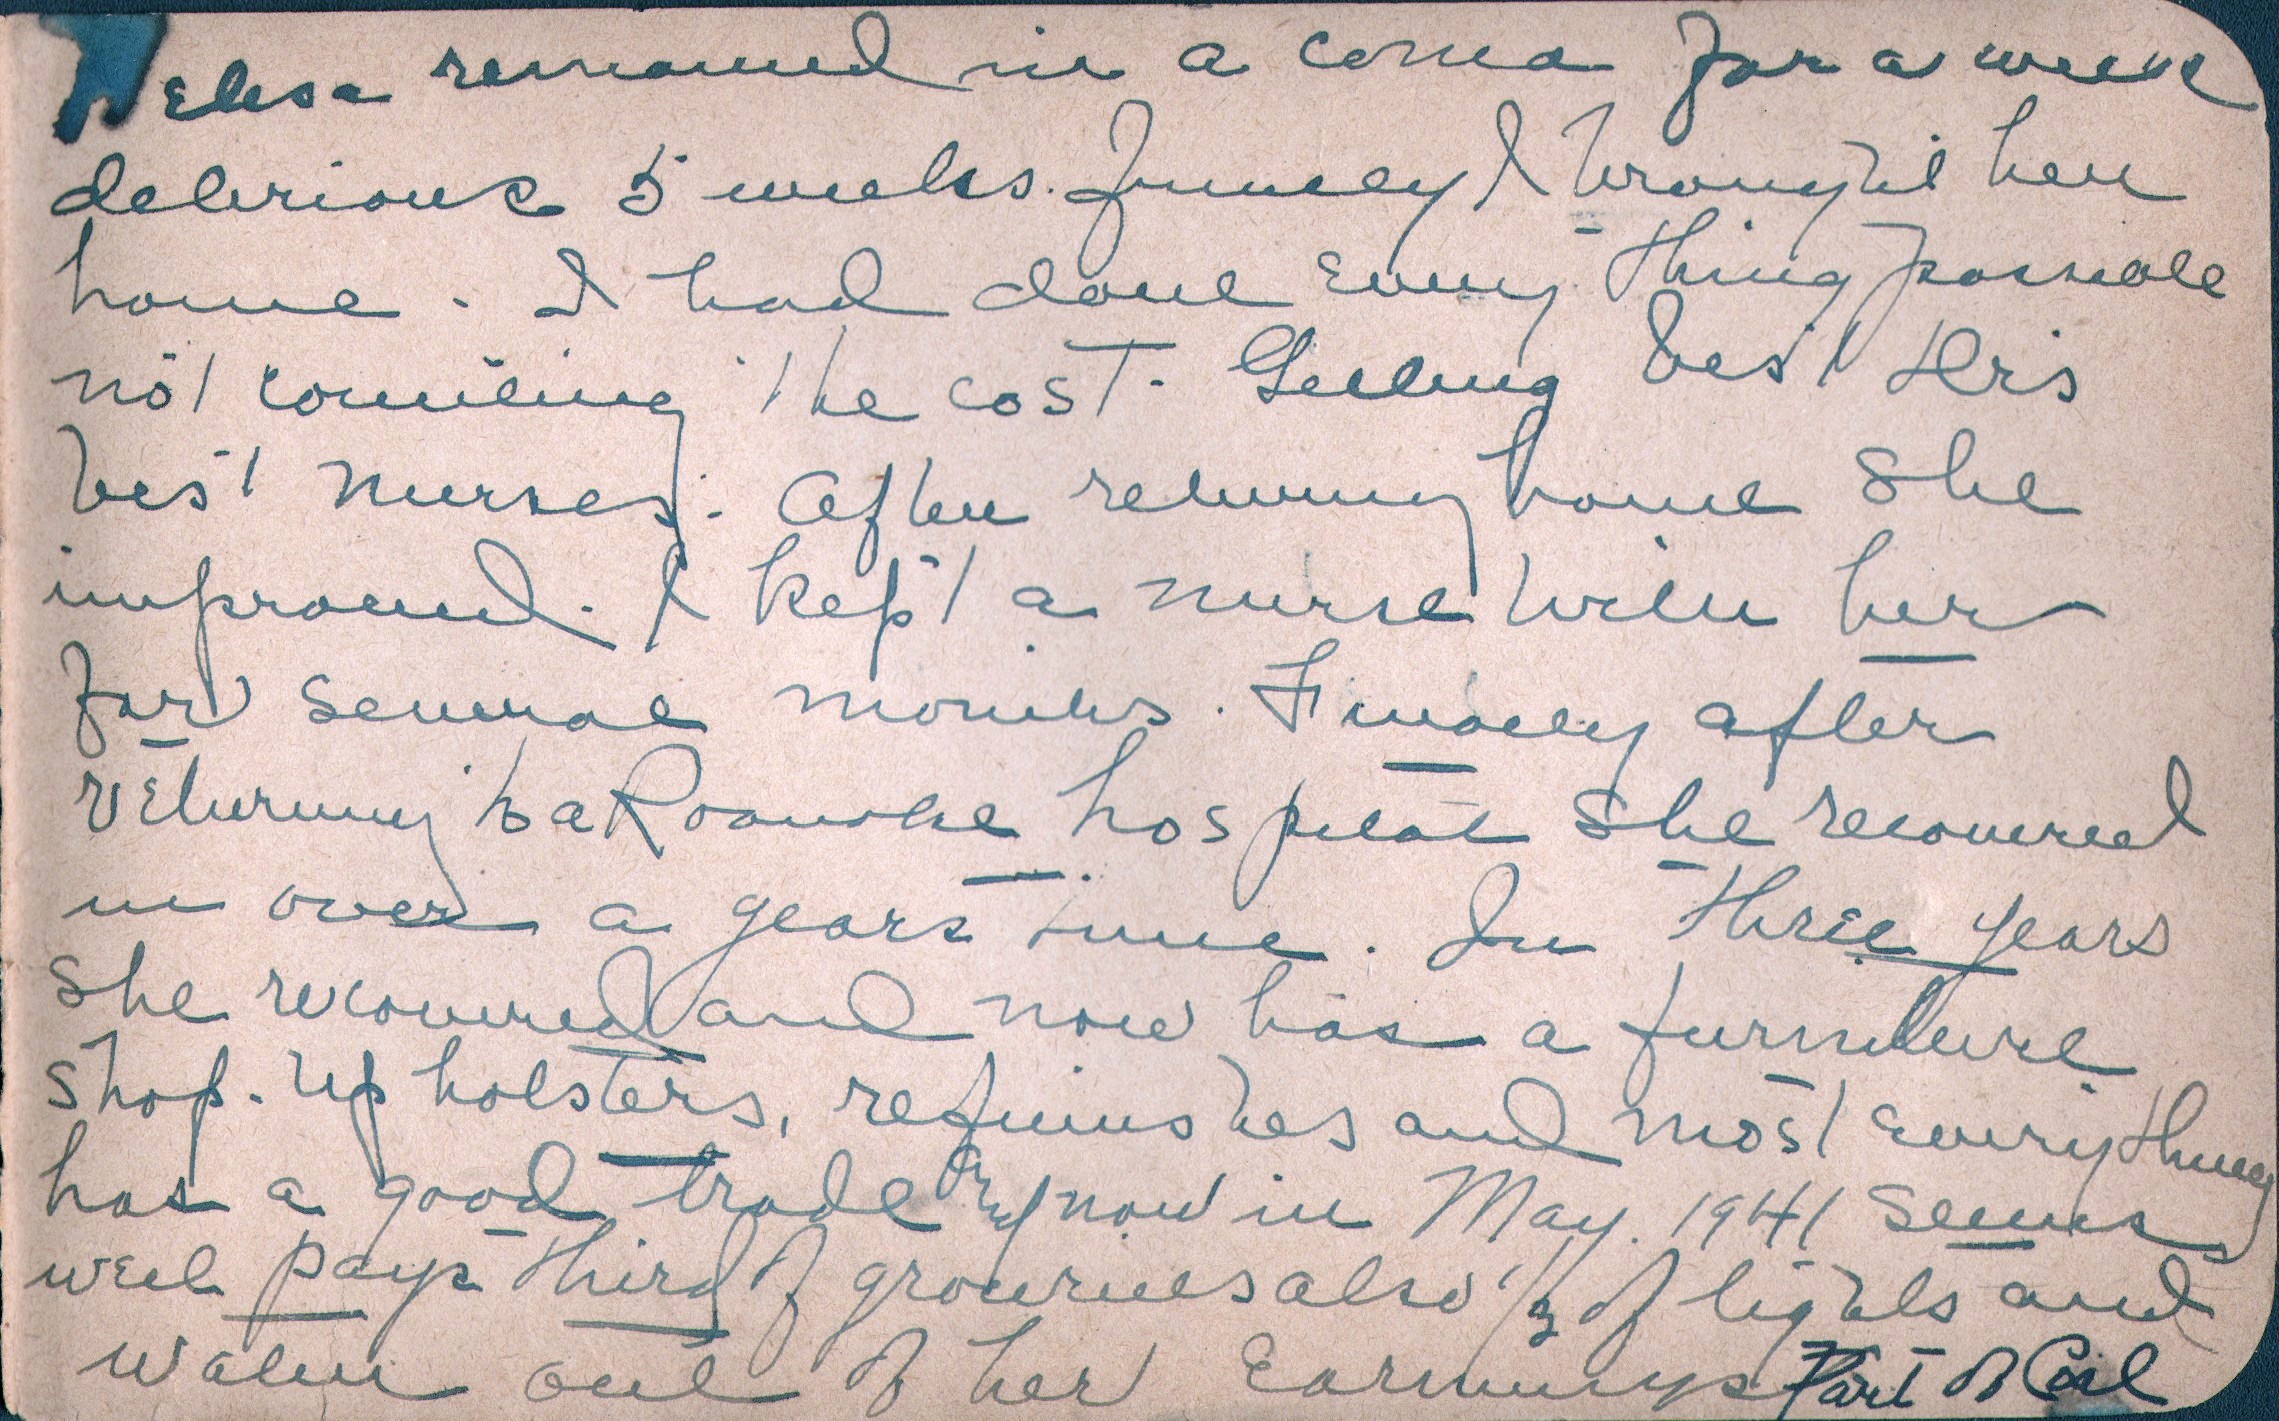 Elsa remained in a coma for a week
delirious 5 weeks. Finally I brought her
home. I had done every thing possible
not counting the cost. Getting best Drs
best nurses. After returning home she
improved. I kept a nurse with her
for several months. Finally after
returning to a Roanoke hospital she recovered
in over a years time. In three years
she recovered and now has a furniture
shop. Upholsters, refinishes and most everything
has a good trade and now in May. 1941 seems
well pays third of groceries also 1/3 of lights and
water out of her earnings Part of Coal